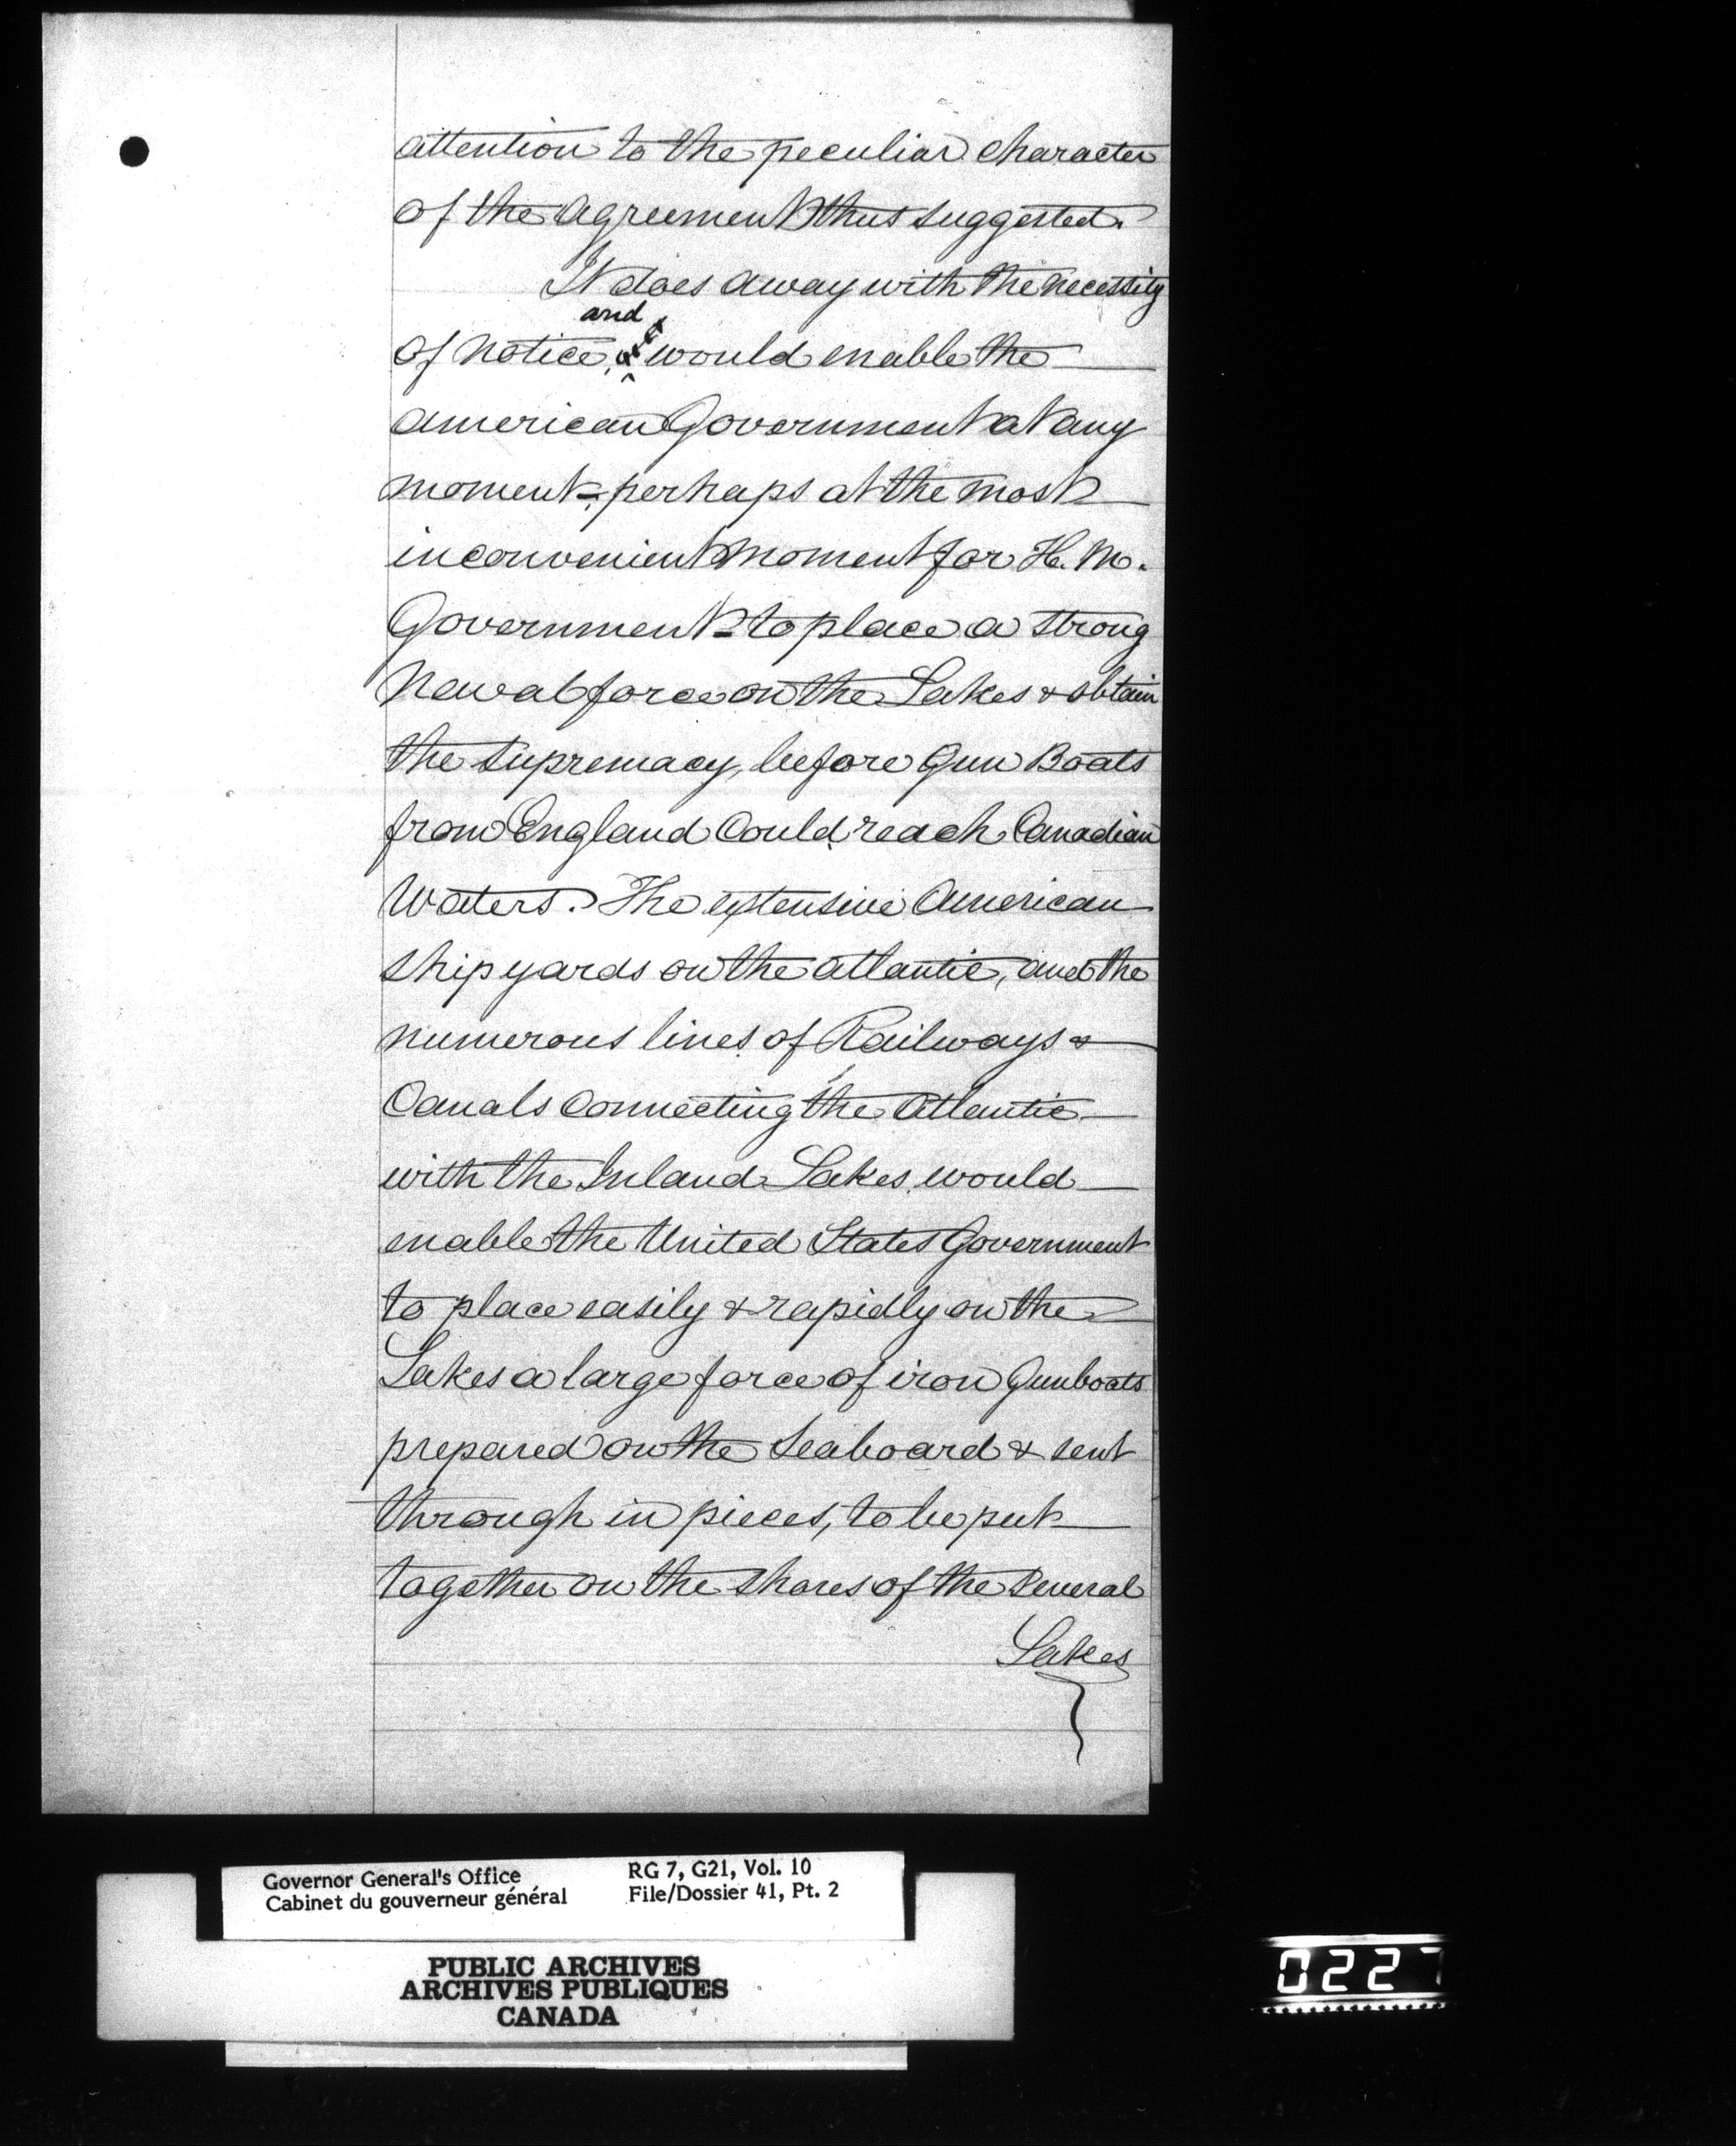 attention to the peculiar character
of the agreement thus suggested.
It does away with the necessity
and
of notice, & would enable the
American Government at any
moment - perhaps at the most
inconvenient moment for H. M.
Government - to place a strong
Naval force on the Lakes & obtain
the supremacy, before Gun Boats
from England could reach Canadian
Waters. The extensive American
ship yards on the Atlantic, and the
numerous lines of Railways &
Canals connecting the Atlantic
with the Inland Lakes would
enable the United States Government
to place easily & rapidly on the
Lakes a large force of iron Gunboats
prepared on the Seaboard & sent
through in pieces, to be put
together on the shores of the several
Lakes
Governor General's Office RG 7, G21, Vol. 10
Cabinet du gouverneur général File/Dossier 41, Pt. 2
PUBLIC ARCHIVES
ARCHIVES PUBLIQUES
CANADA
0227